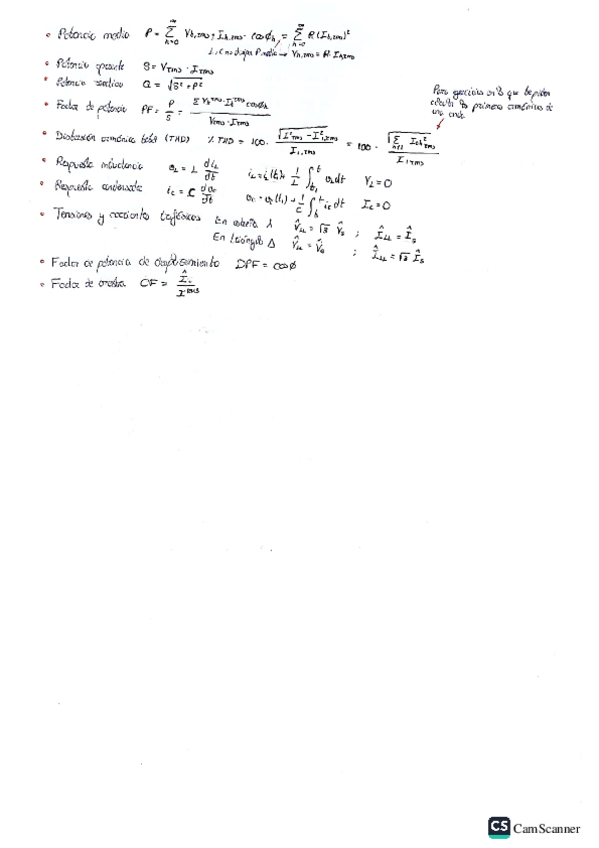 • Potencia media P = Σ_{h=0}^{∞} Vh,rms · Ih,rms · cos Øh = Σ_{h=0}^{∞} R (Ih,rms)²
L i C no disipa P media → Vh,rms = R · Ih,rms
• Potencia aparente S = Vrms · Irms
• Potencia reactiva Q = √(S² - P²)
• Factor de potencia PF = P/S = Σ Vh rms · Ih rms cos Øh / Vrms · Irms
Para ejercicios en los que te piden
primeros armónicos de
una onda
• Distorsión armónica total (THD) % THD = 100 · √(I²rms - I²1,rms) / I1,rms = 100 · √(Σ_{h≠1} Ih²rms) / I1rms
• Respuesta inductancia vL = L diL/dt iL = i(t1) + 1/L ∫_{t1}^{t} vL dt VL = 0
• Respuesta condensador ic = C dvc/dt vc = vc(t1) + 1/C ∫_{t1}^{t} ic dt Ic = 0
• Tensiones y corrientes trifásicas En estrella ⅄ V̂LL = √3 V̂s ; ÎLL = Îs
En triángulo Δ V̂LL = V̂s ; ÎLL = √3 Îs
• Factor de potencia de desplazamiento DPF = cos Ø
• Factor de cresta CF = Î / I rms
CS CamScanner